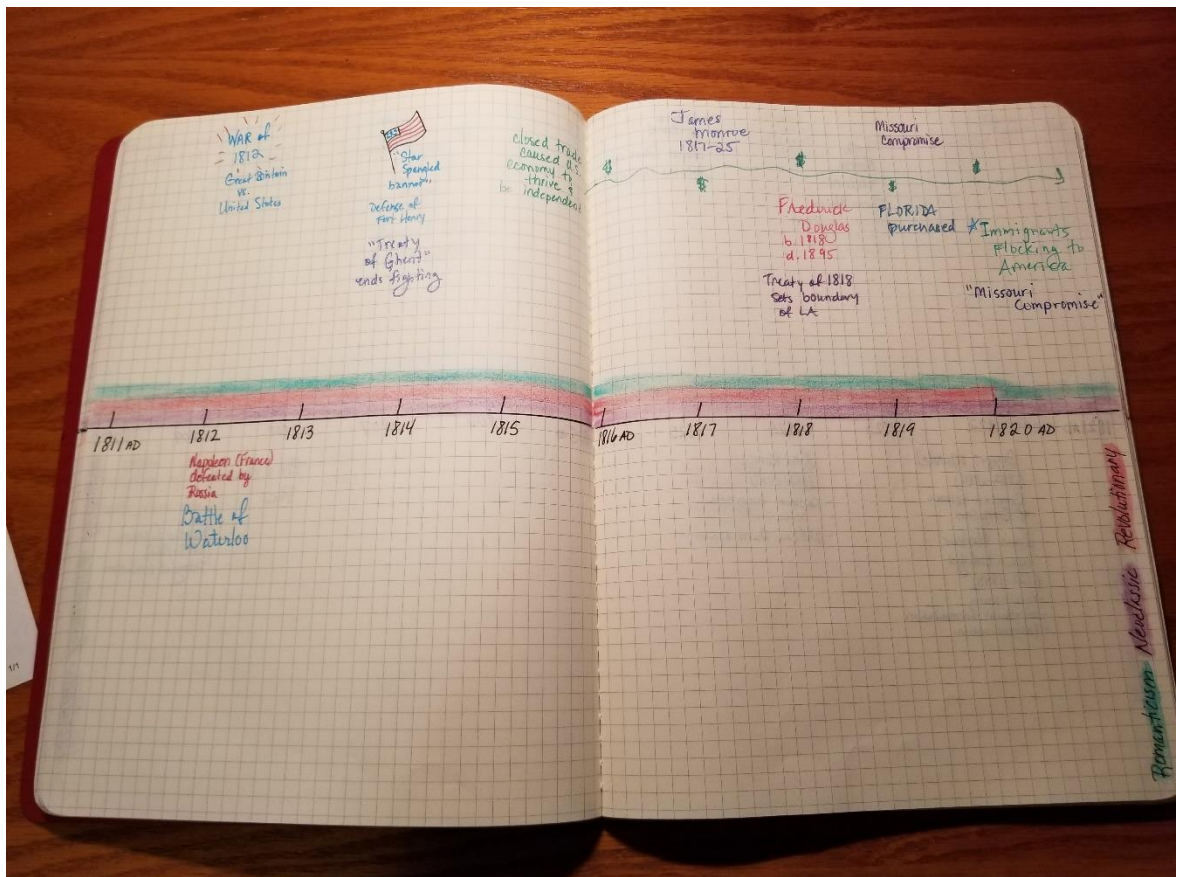 WAR of
1812
Great Britain
vs.
United States
"Star
Spangled
banner"
Defense of
Fort Henry
"Treaty
of Ghent"
ends fighting
closed trade
caused U.S.
economy to
thrive &
be independent
$ $ $ $ $
James
Monroe
1817-25
Missouri
Compromise
Frederick
Douglas
b. 1818
d. 1895
Treaty of 1818
sets boundary
of LA
FLORIDA
purchased
*Immigrants
flocking to
America
"Missouri
Compromise"
1811 AD 1812 1813 1814 1815 1816 AD 1817 1818 1819 1820 AD
Napoleon (France)
defeated by
Russia
Battle of
Waterloo
Romanticism Neoclassic Revolutionary
1/1